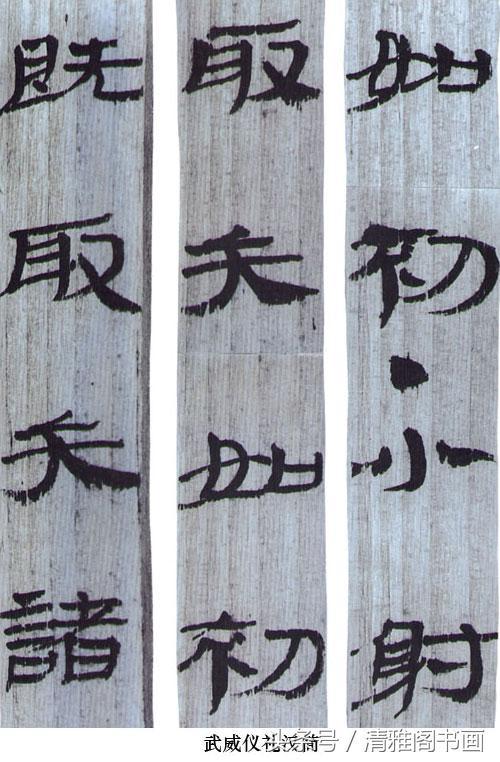 如初·小射
取矢如初
既取矢諸
武威仪礼汉简
头条号 / 清雅阁书画